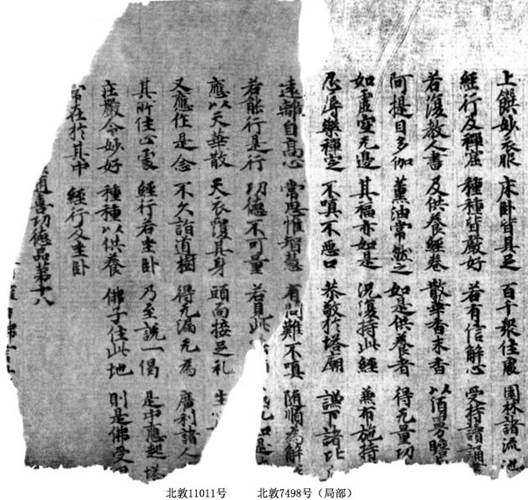 上饌妙衣服 床臥皆具足 百千衆住處 園林諸流池
經行及禪窟 種種皆嚴好 若有信解心 受持讀誦
若復教人書 及供養經卷 散華香末香 以須曼瞻
阿提目多伽 薰油常然之 如是供養者 得无量功
如虛空无邊 其福亦如是 況復持此經 兼布施持
忍辱樂禪定 不嗔不惡口 恭敬於塔廟 謙下諸比
遠離自高心 常思惟智慧 有問難不嗔 隨順為解
若能行是行 功德不可量 若見此 如是
應以天華散 天衣覆其身 頭面接足礼 生
又應作是念 不久詣道樹 得无漏无為 廣利諸人
其所住止處 經行若坐臥 乃至說一偈 是中應起塔
莊嚴令妙好 種種以供養 佛子住此地 則是佛受
常在於其中 經行及坐臥
隨喜功德品第十八
北敦11011号
北敦7498号（局部）